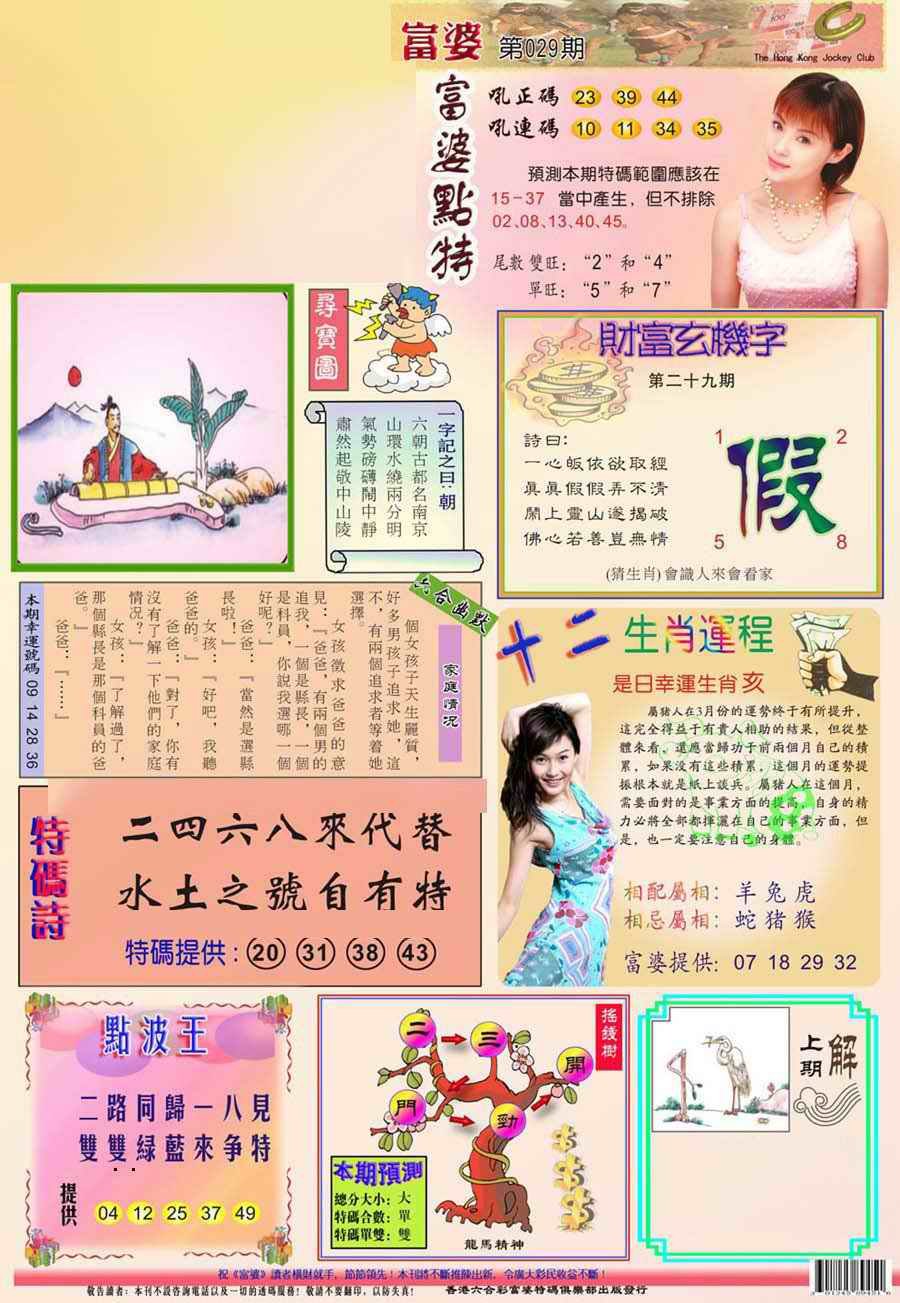 富婆 第029期
The Hong Kong Jockey Club
富婆點特
吼正碼 23 39 44
吼連碼 10 11 34 35
預測本期特碼範圍應該在
15-37 當中產生，但不排除
02、08、13、40、45。
尾數雙旺：“2”和“4”
單旺：“5”和“7”
尋寶圖
一字記之曰：朝
六朝古都名南京
山環水繞兩分明
氣勢磅礡鬧中靜
肅然起敬中山陵
財富玄機字
第二十九期
詩曰：
一心皈依欲取經
真真假假弄不清
鬧上靈山遂揭破
佛心若善豈無情
假
1 2
5 8
(猜生肖)會識人來會看家
六合幽默
家庭情況
個女孩子天生麗質，
好多男孩子追求她，這
不，有兩個追求者等着她
選擇。
女孩徵求爸爸的意
見：『爸爸，有兩個男的
追我，一個是縣長，一個
是科員，你說我選哪一個
好呢？』
爸爸：『當然是選縣
長啦！』
女孩：『好吧，我聽
爸爸的。』
爸爸：『對了，你有
沒有了解一下他們的家庭
情況？』
女孩：『了解過了，
那個縣長是那個科員的爸
爸。』
爸爸：『……』
本期幸運號碼 09 14 28 36
十二生肖運程
是日幸運生肖亥
屬猪人在3月份的運勢終于有所提升，
這完全得益于有貴人相助的結果，但從整
體來看，還應當歸功于前兩個月自己的積
累，如果没有這些積累，這個月的運勢提
振根本就是紙上談兵。屬猪人在這個月，
需要面對的是事業方面的提高，自身的精
力必將全部都揮灑在自己的事業方面，但
是，也一定要注意自己的身體。
相配屬相：羊兔虎
相忌屬相：蛇猪猴
富婆提供：07 18 29 32
特碼詩
二四六八來代替
水土之號自有特
特碼提供：20 31 38 43
點波王
二路同歸一八見
雙雙綠藍來争特
提供 04 12 25 37 49
搖錢樹
二 三 開
門 勁
本期預測
總分大小：大
特碼合數：單
特碼單雙：雙
龍馬精神
上期解
祝《富婆》讀者橫財就手，節節領先！本刊將不斷推陳出新，令廣大彩民收益不斷！
敬告讀者：本刊不設咨詢電話以及一切的透碼服務！敬請不要翻印，以防失真！
香港六合彩富婆特碼俱樂部出版發行